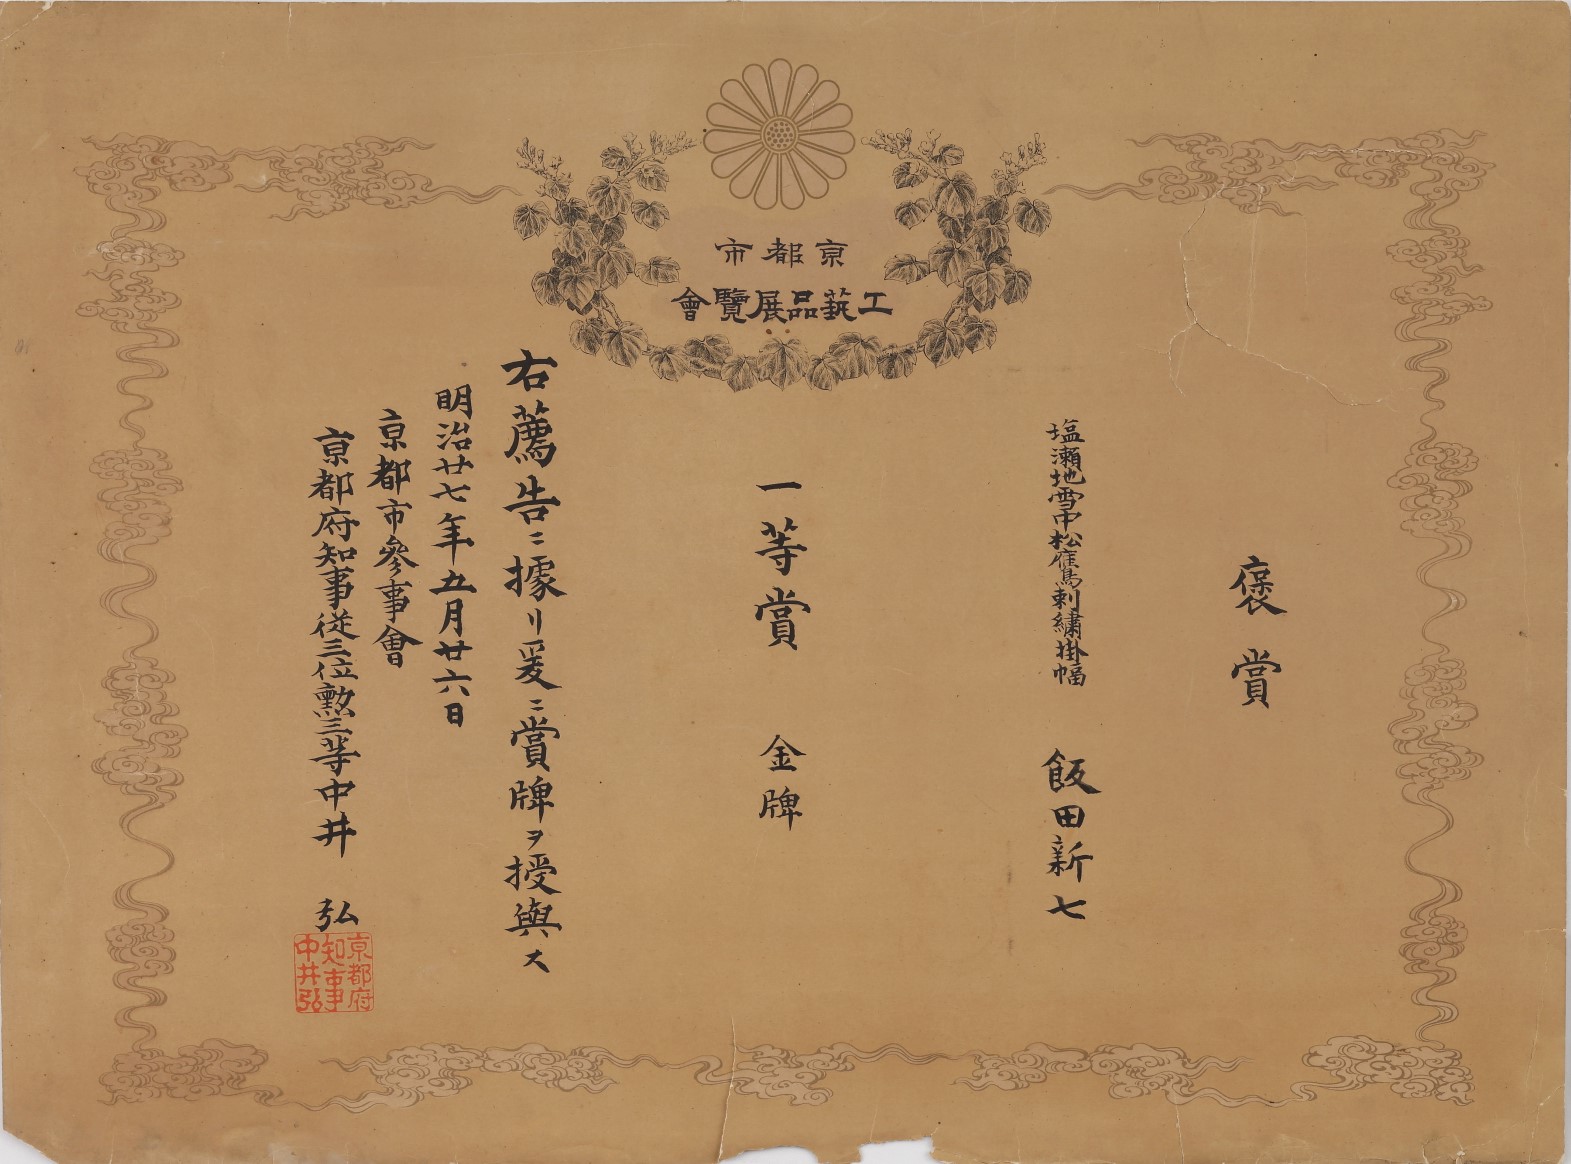 京都市
工藝品展覧會
褒賞
塩瀬地雪中松雁鳥刺繍掛幅 飯田新七
一等賞 金牌
右薦告ニ據リ爰ニ賞牌ヲ授與ス
明治廿七年五月廿六日
京都市參事會
京都府知事従三位勲三等中井 弘
京都府
知事
中井弘